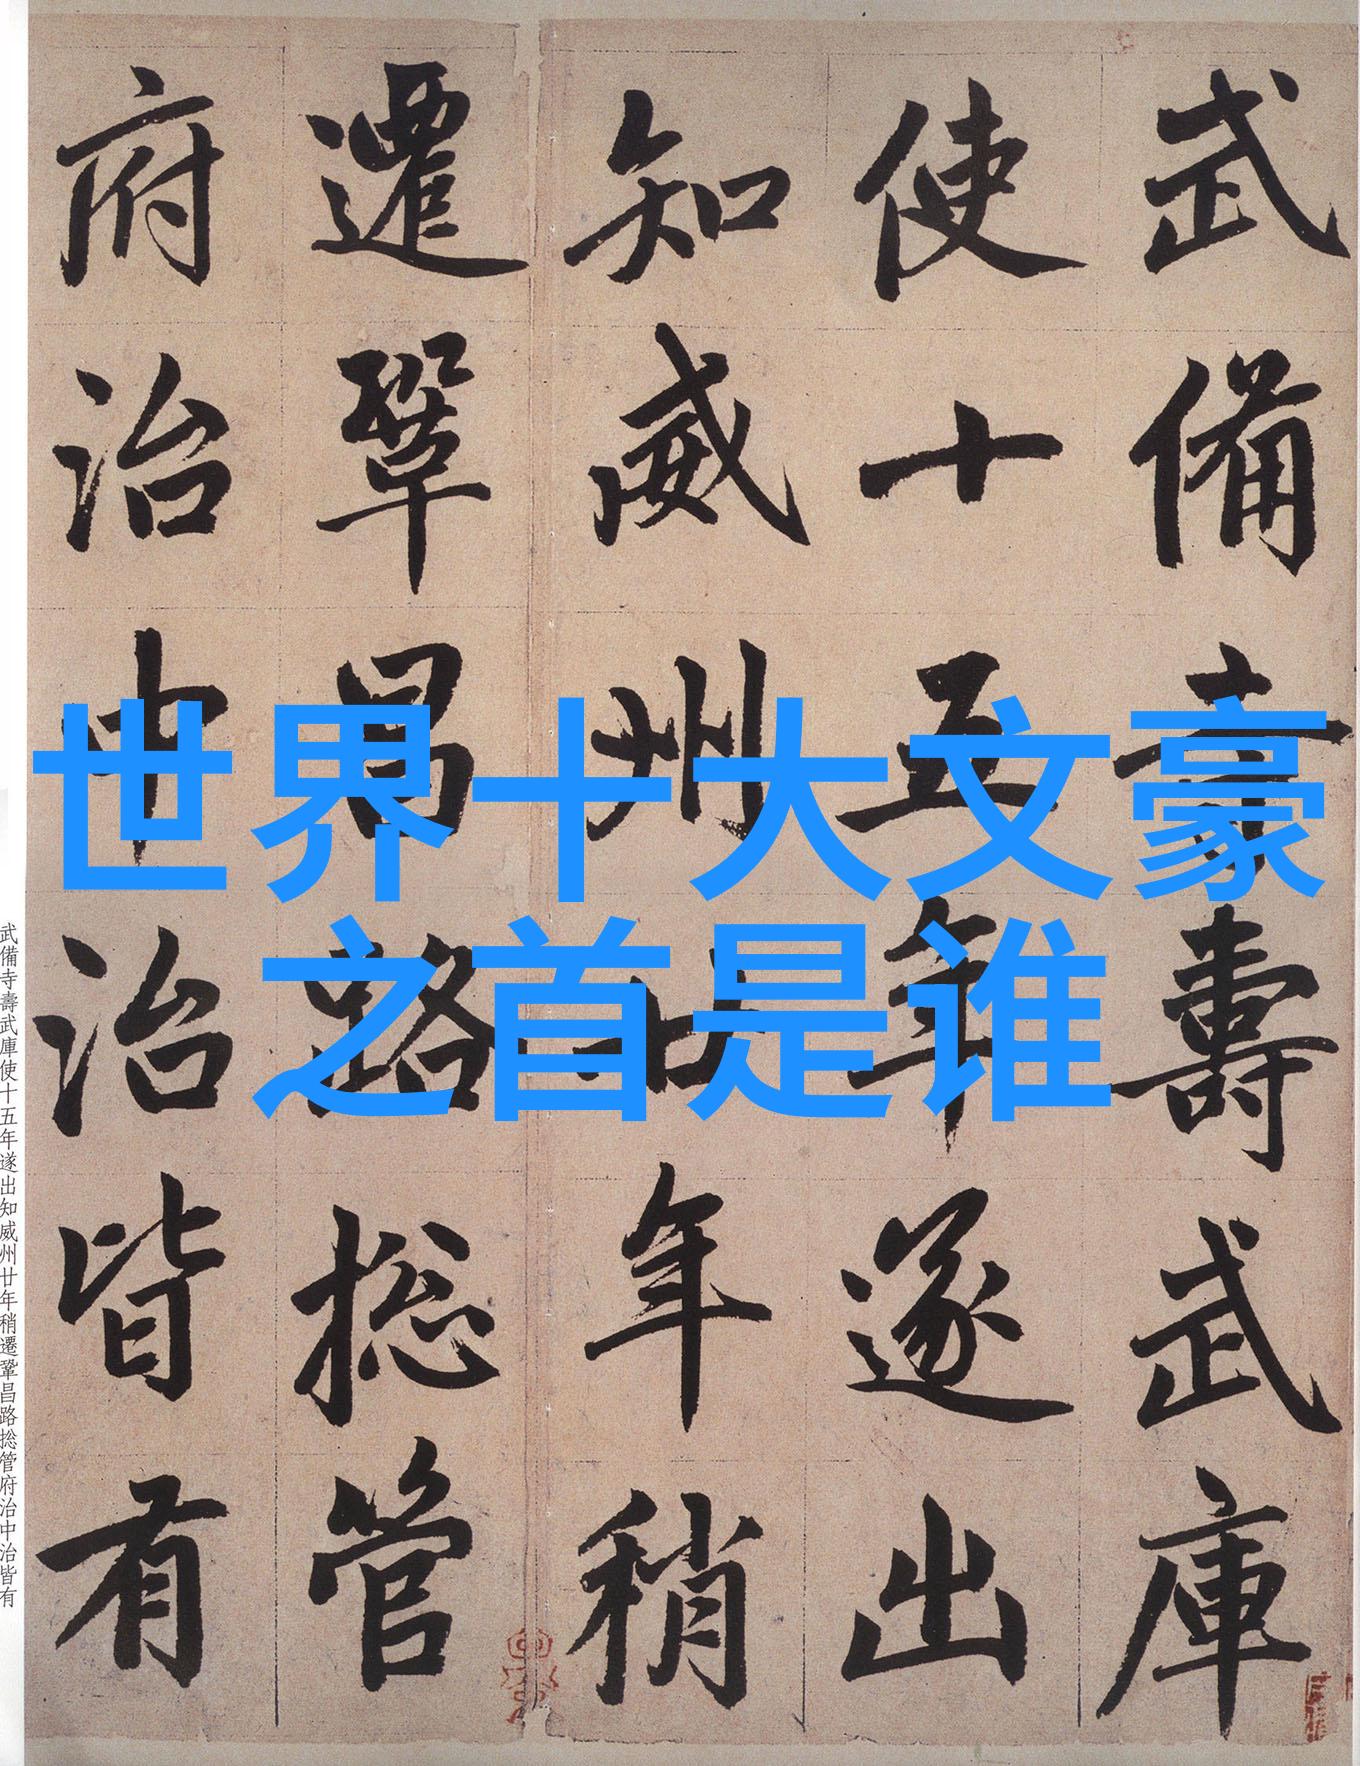 世界十大文豪
之首是谁
武備寺壽武庫
使十五年遂出
知威州廿年稍
遷鞏昌路捴管
府治中治皆有
武備寺壽武庫使十五年遂出知威州廿年稍遷鞏昌路捴管府治中治皆有